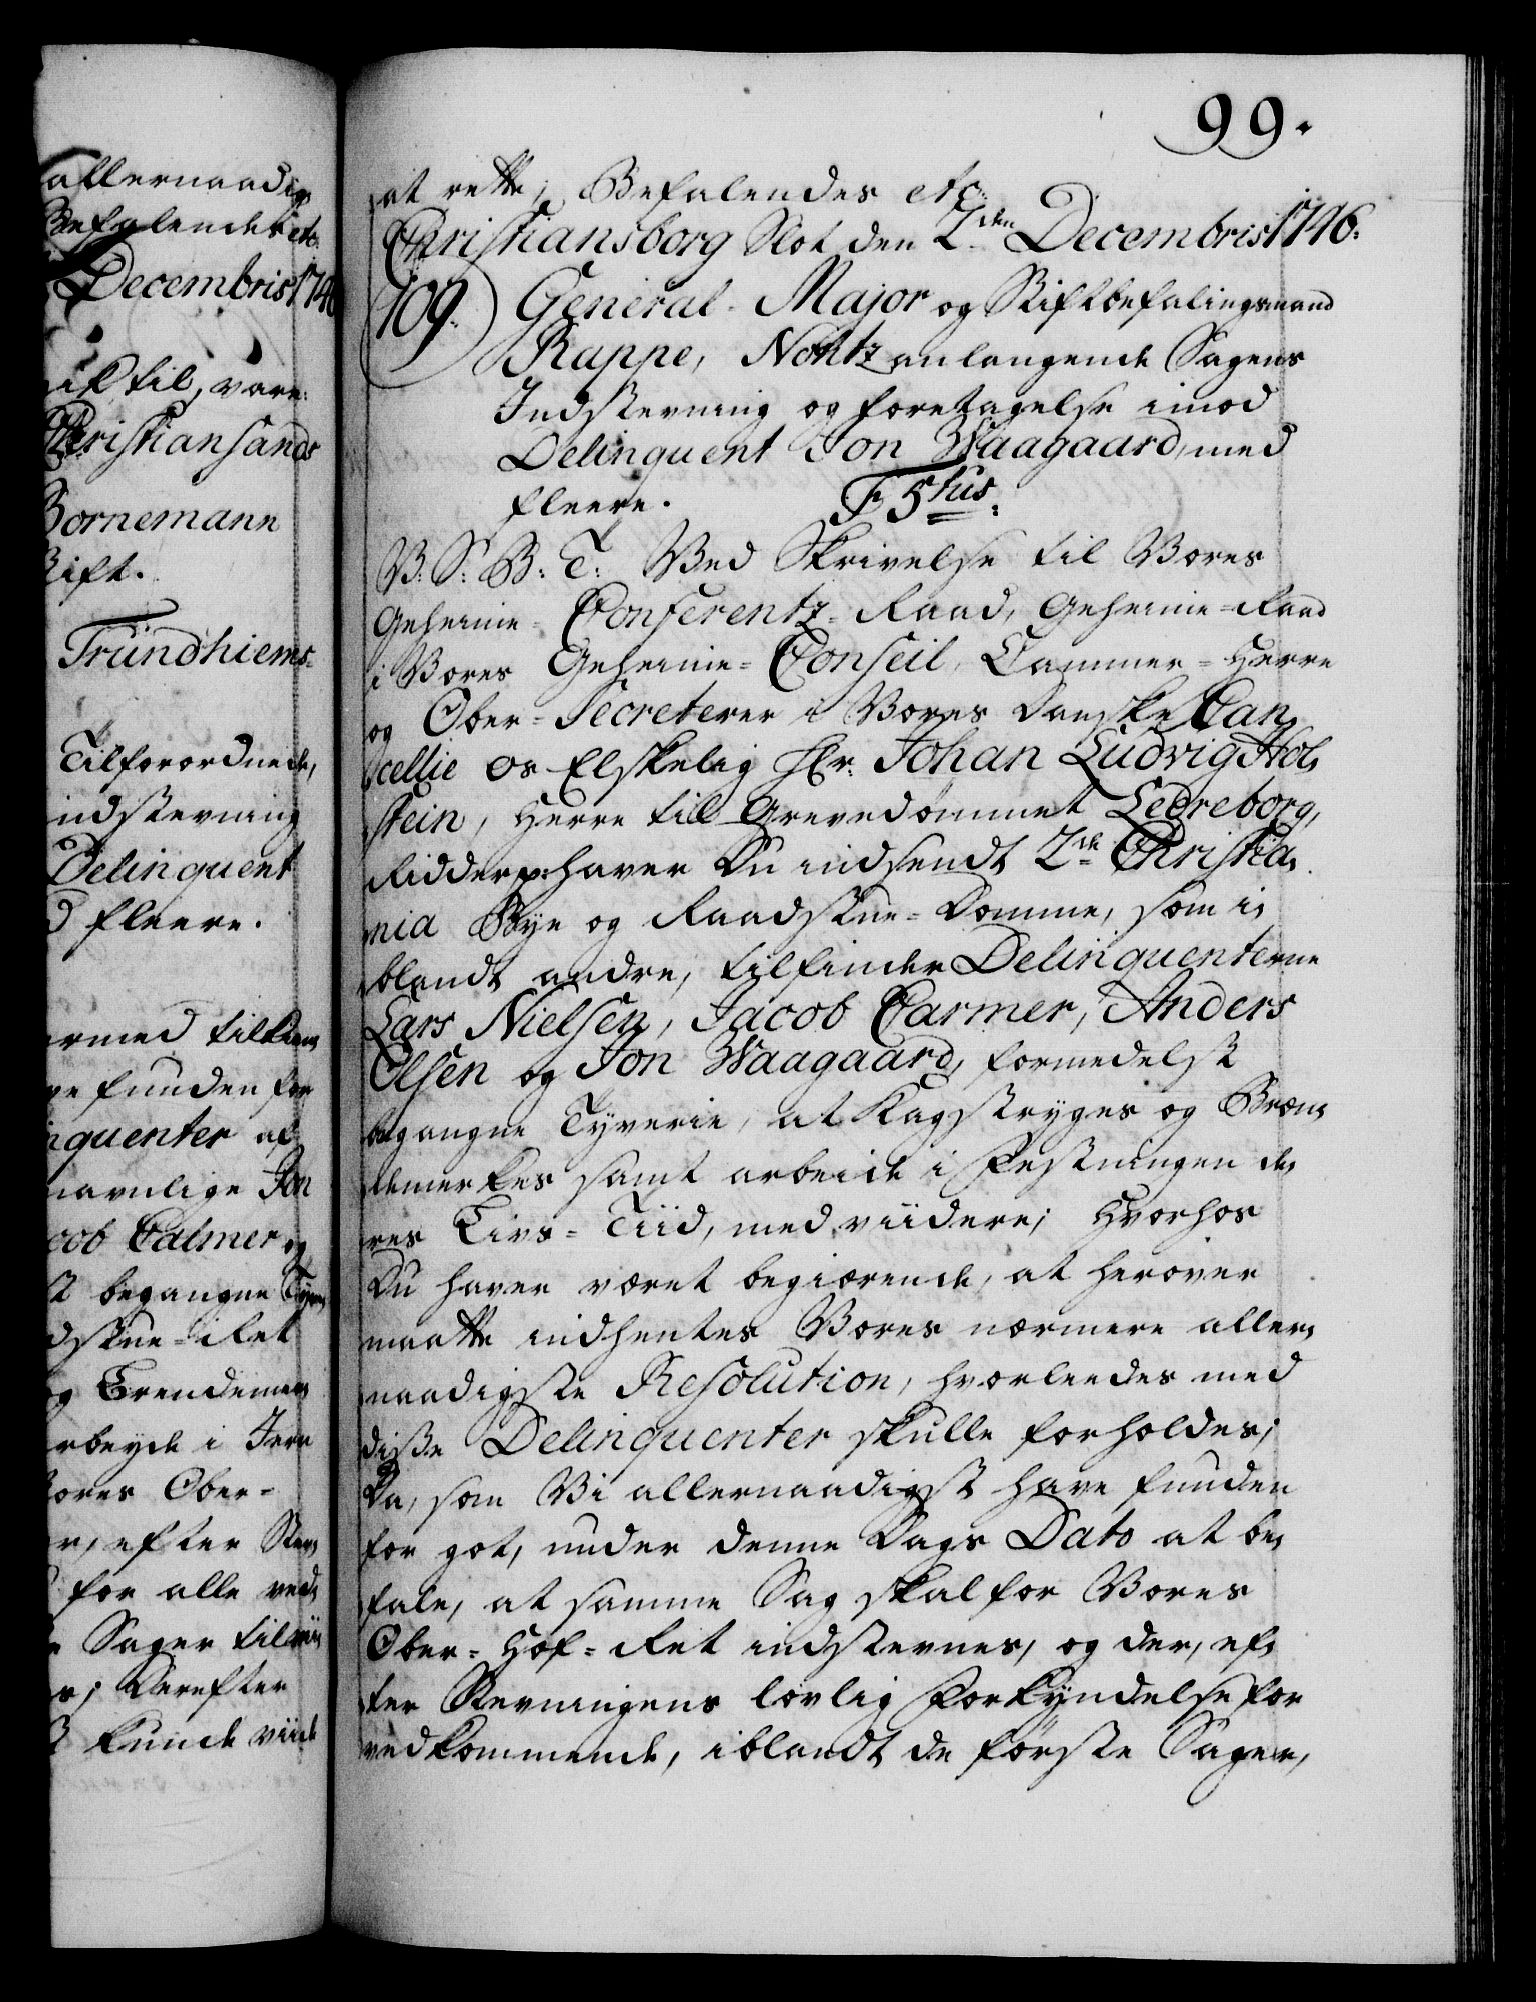 allernaadig
Befalendes etc:
Decembris 1746
til, være
Christiansands
Bornemann
Stift.
Trundhiems-
Tilforordnede,
indstevning
Delinquent
fleere.
funden for
quenter af
navnlige Jon
Jacob Calmer og
begangne Tyve-
og Brendemer-
arbeyde i Jern
Vores Ober-
efter Stev-
for alle ved-
Sager til
Derefter
kunde viide
99.
at rette; Befalendes etc:
Christiansborg Slot den 2den Decembris 1746.
109. General-Major og Stiftbefalingsmand
Rappe, Nontz anlangende Sagens
Indstevning og foretagelse imod
Delinquent Jon Waagaard, med
fleere. F. 5tus.
V: S: B: T: Ved Skrivelse til Vores
Geheime-Conferentz-Raad, Geheime-Raad
i Vores Geheime-Conseil, Cammer-Herre
og Ober-Secreterer i Vores Danske Can-
cellie Os Elskelig Hr: Johan Ludvig Hol-
stein, Herre til Grevedømmet Ledreborg,
Ridder p: haver Du indsendt 2de Christia-
nia Bye og Raadstue-Domme, som i-
blandt andre, tilfinder Delinquenterne
Lars Nielsen, Jacob Carmer, Anders
Olsen og Jon Waagaard, formedelst
begangne Tyverie, at Kagstryges og Bræn-
demerkes samt arbeide i Festningen de-
res Livs-Tiid, med viidere; Hvorhos
Du haver været begiærende, at herover
maatte indhentes Vores nærmere aller-
naadigste Resolution, hvorleedes med
disse Delinquenter skulle forholdes;
Da, som Vi allernaadigst have funden
for got, under denne Dags Dato at be-
fale, at samme Sag skal for Vores
Ober-Hof-Ret indstevnes, og der, ef-
ter Stevningens lovlig Forkyndelse for
vedkommende, iblandt de første Sager,